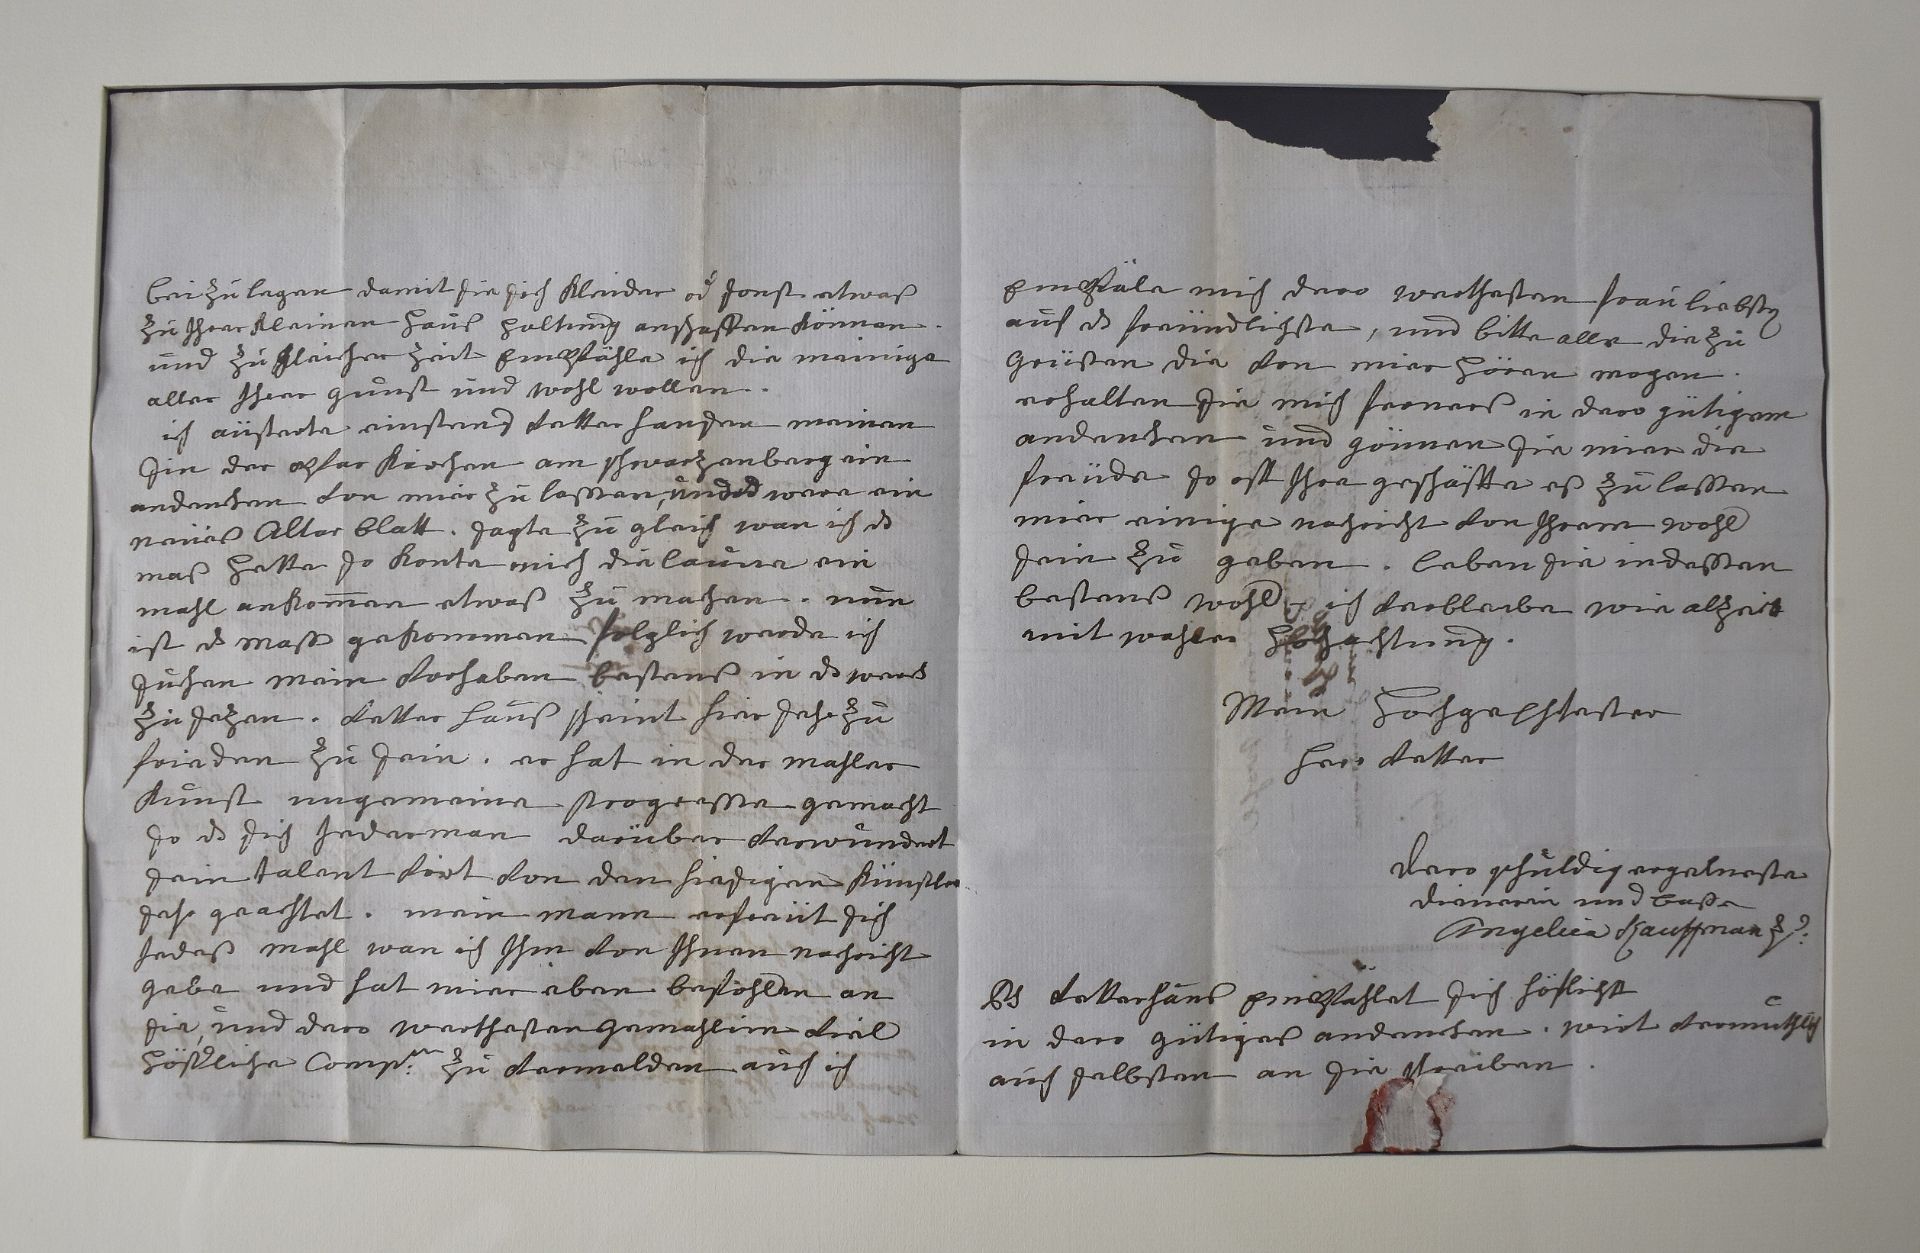 bei zu legen damit sie sich Kleider od sonst etwaß
zu Ihrer Kleinen hauß haltung anschaffen können.
und zu gleicher zeit empfähle ich die meinige
aller Ihrer gunst und wohl wollen.
ich äusterte einstens vetter hansen meinen
Sin der pfar Kirchen am schwarzenberg ein
andencken von mier zu lassen, und es were ein
neües Altar blatt. sagte zu gleich wan ich ds
maß hette so konte mich die laune ein
mahl ankom̄en etwaß zu machen. nun
ist ds mass gekommen folglich werde ich
suchen mein vorhaben bestens in ds werck
zu sezen. vetter hanß scheint hier sehr zu
frieden zu sein. er hat in der mahler
kunst ungemeine progresse gemacht
so ds sich Jederman darüber verwundert
sein talent wirt von den hiesigen Künstler
sehr geachtet. mein mann erfreüt sich
Jedeß mahl wan ich Ihm von Ihnen nachricht
gebe und hat mier eben befohlen an
sie, und dero werthesten Gemahlin viel
höffliche Compm: zu vermelden auch ich
empfäle mich dero werthesten frau liebsten
auf ds freündlichste, und bitte alle die zu
Grüsten die von mier hören mogen.
erhalten sie mich ferners in dero gütigem
andencken und gönnen sie mier die
freüde so oft Ihre geschäffte eß zu lassen
mier einige nachricht von Ihrem wohl
sein zu geben. leben sie indessen
bestens wohl ich verbleibe wie alzeit
mit wahrer Hochachtung.
Mein Hochgeschäster
herr vetter
Dero schuldig ergebneste
dienerin und baße
Angelica Kauffman Z:
PS vetter hanß empfählet sich höflichst
in dero gütiges andencken. wirt vermuthlich
auch selbsten an sie schreiben.